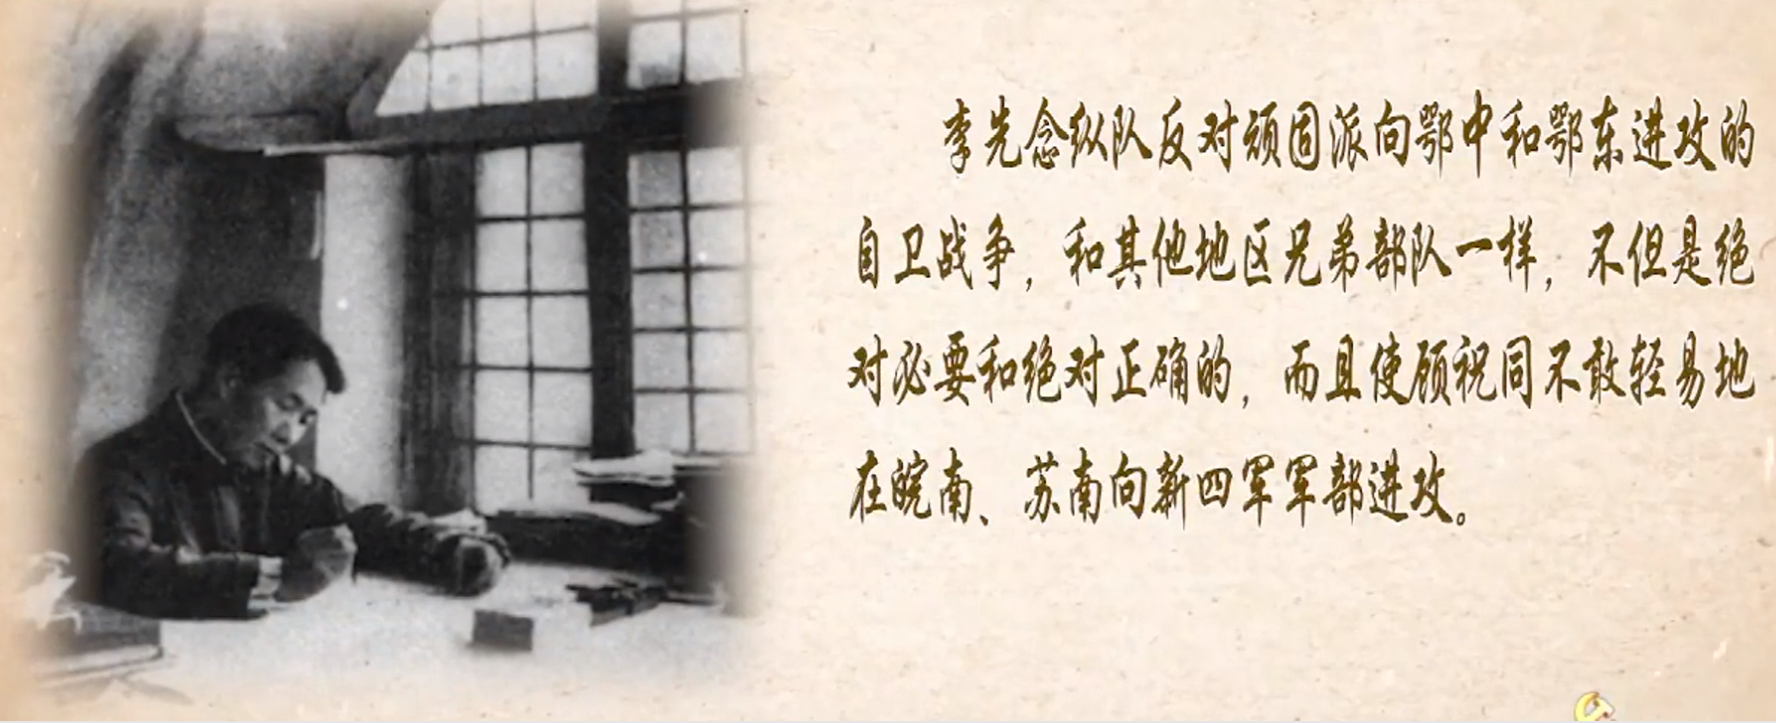 李先念纵队反对顽固派向鄂中和鄂东进攻的
自卫战争，和其他地区兄弟部队一样，不但是绝
对必要和绝对正确的，而且使顾祝同不敢轻易地
在皖南、苏南向新四军军部进攻。